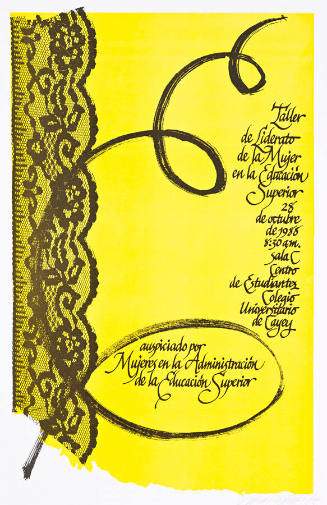 Taller
de Liderato
de la Mujer
en la Educación
Superior
28
de octubre
de 1986
8:30 a.m.
Sala C
Centro
de Estudiantes
Colegio
Universitario
de Cayey
auspiciado por
Mujeres en la Administración
de la Educación Superior